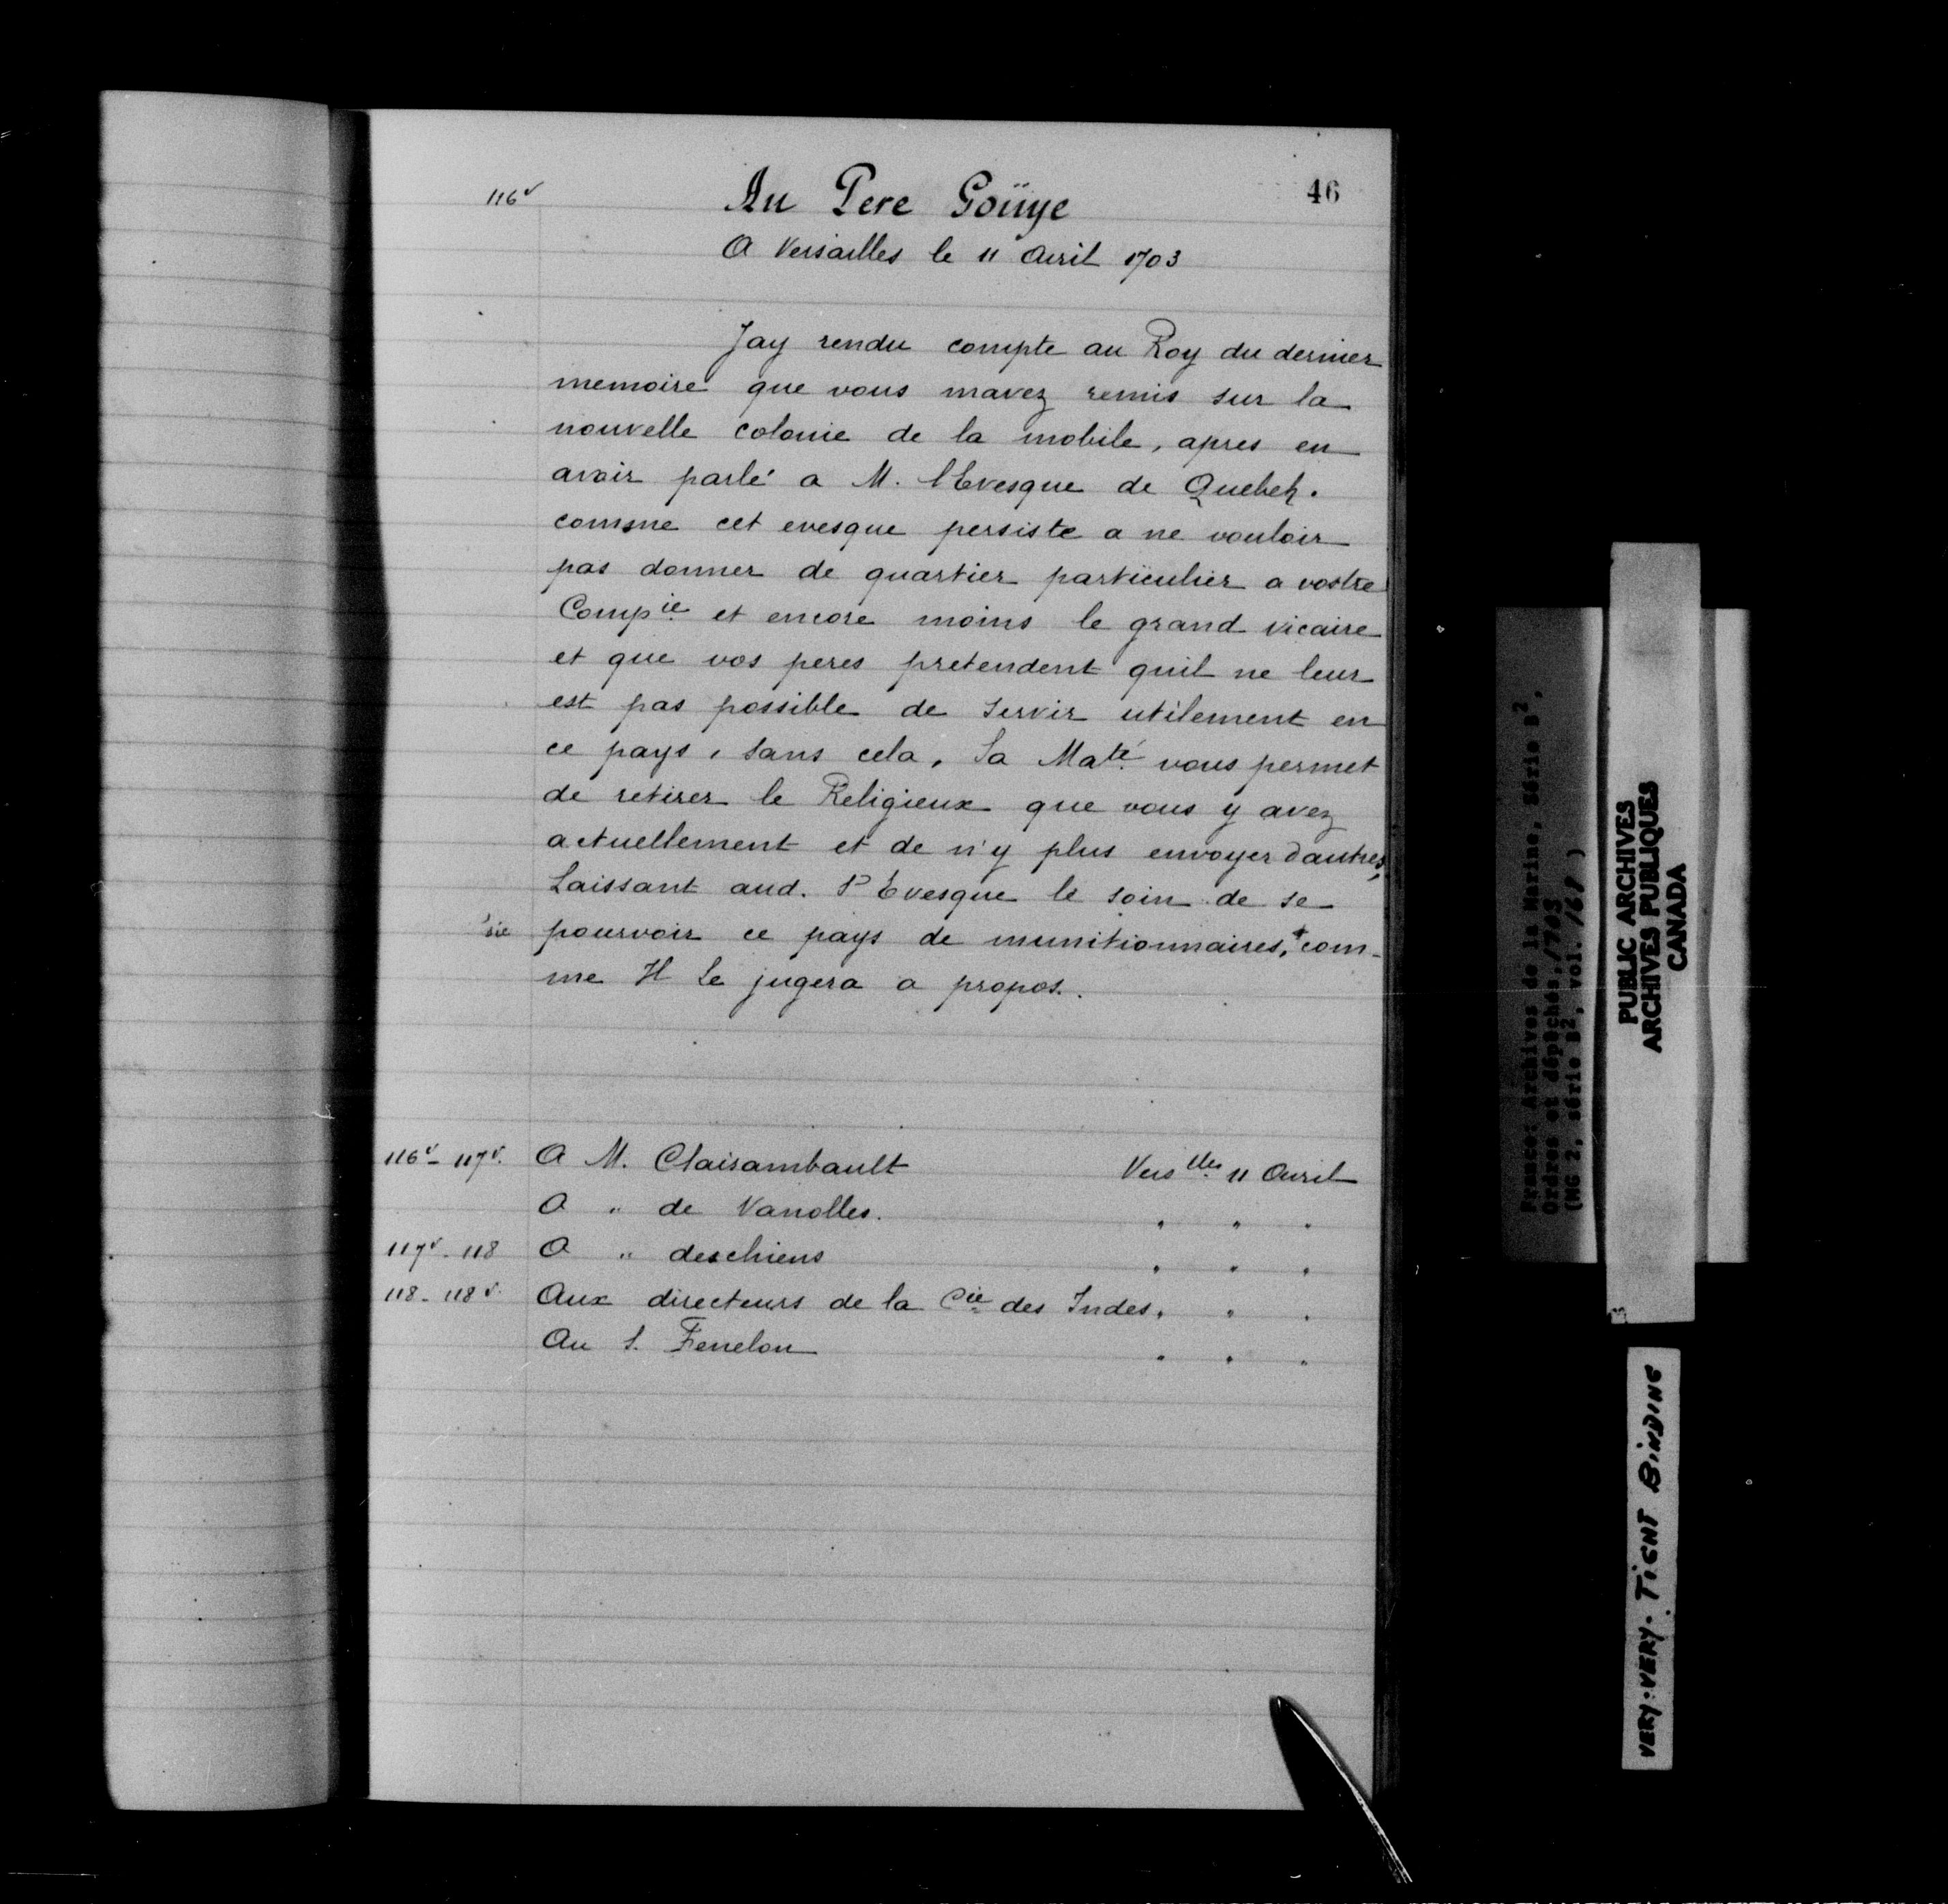 116v
46
Au Pere Goüye
A Versailles le 11 Avril 1703
Jay rendu compte au Roy du dernier
memoire que vous mavez remis sur la
nouvelle colonie de la mobile, apres en
avoir parlé a M. lEvesque de Quebek.
comme cet evesque persiste a ne vouloir
pas donner de quartier particulier a vostre
Compie et encore moins le grand vicaire
et que vos peres pretendent quil ne leur
est pas possible de servir utilement en
ce pays, sans cela, Sa Maté vous permet
de retirer le Religieux que vous y avez
actuellement et de n'y plus envoyer dautres,
Laissant aud. S Evesque le soin de se
sic pourvoir ce pays de munitionnaires,+ com-
me Il le jugera a propos.
116v - 117v. A M. Clairambault Verslles 11 Avril
A " de Vanolles. " " "
117v - 118 A " deschiens " " "
118 - 118v. Aux directeurs de la Cie des Indes. " " "
Au S. Fenelon " " "
France: Archives de la Marine, Série B2,
Ordres et dépêches, 1703
(MG 2, série B2, vol. 168 )
PUBLIC ARCHIVES
ARCHIVES PUBLIQUES
CANADA
VERY-VERY-TIGHT BINDING